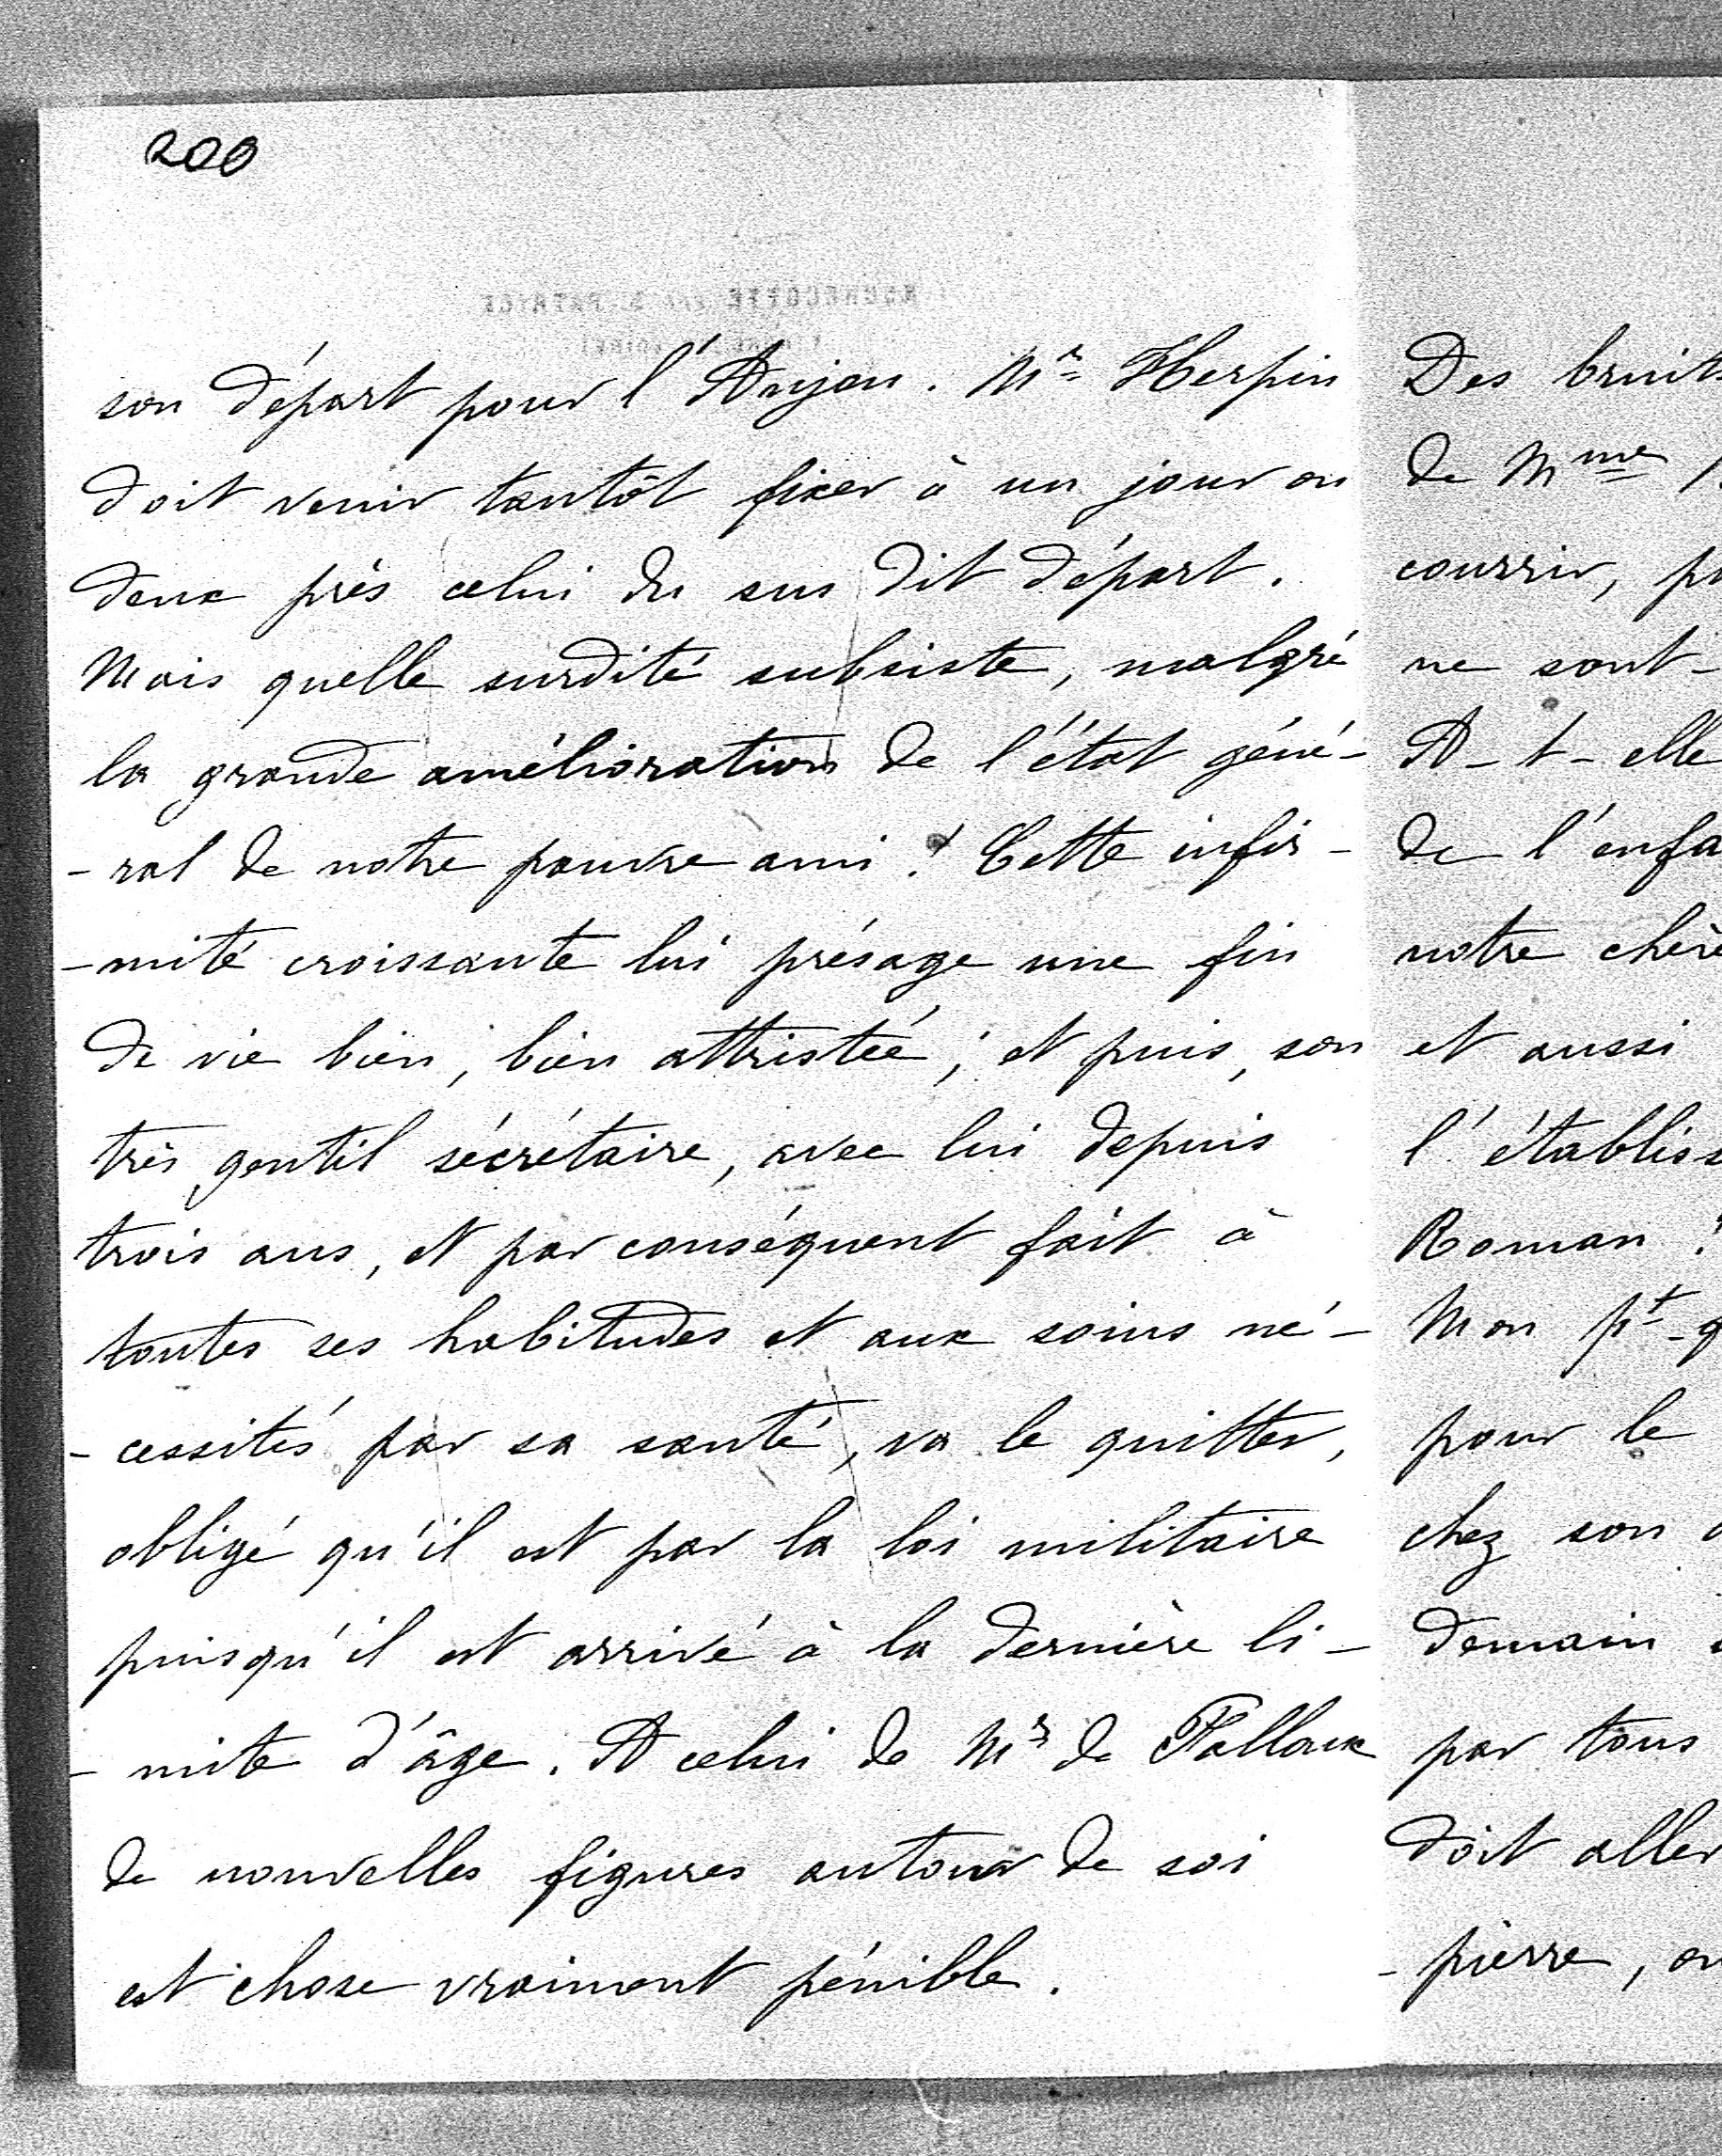 200
son départ pour l'Anjou. Mr Herpin
doit venir tantôt fixer à un jour ou
deux près celui du sus dit départ.
Mais quelle surdité subsiste, malgré
la grande amélioration de l'état géné-
-ral de notre pauvre ami ! Cette infir-
-mité croissante lui présage une fin
de vie bien, bien attristée ; et puis, son
très gentil sécrétaire, avec lui depuis
trois ans, et par conséquent fait à
toutes ses habitudes et aux soins né-
-cessités par sa santé, va le quitter,
obligé qu'il est par la loi militaire
puisqu'il est arrivé à la dernière li-
-mite d'âge. A celui de Mr de Falloux
de nouvelles figures autour de soi
est chose vraiment pénible.
Des bruits
de Mme
courrir,
ne sont-
A-t-elle
de l'enfa
notre chère
et aussi
l'établiss
Roman ?
Mon pt-
pour le
chez son
demain
par tous
doit aller
-pierre, ou